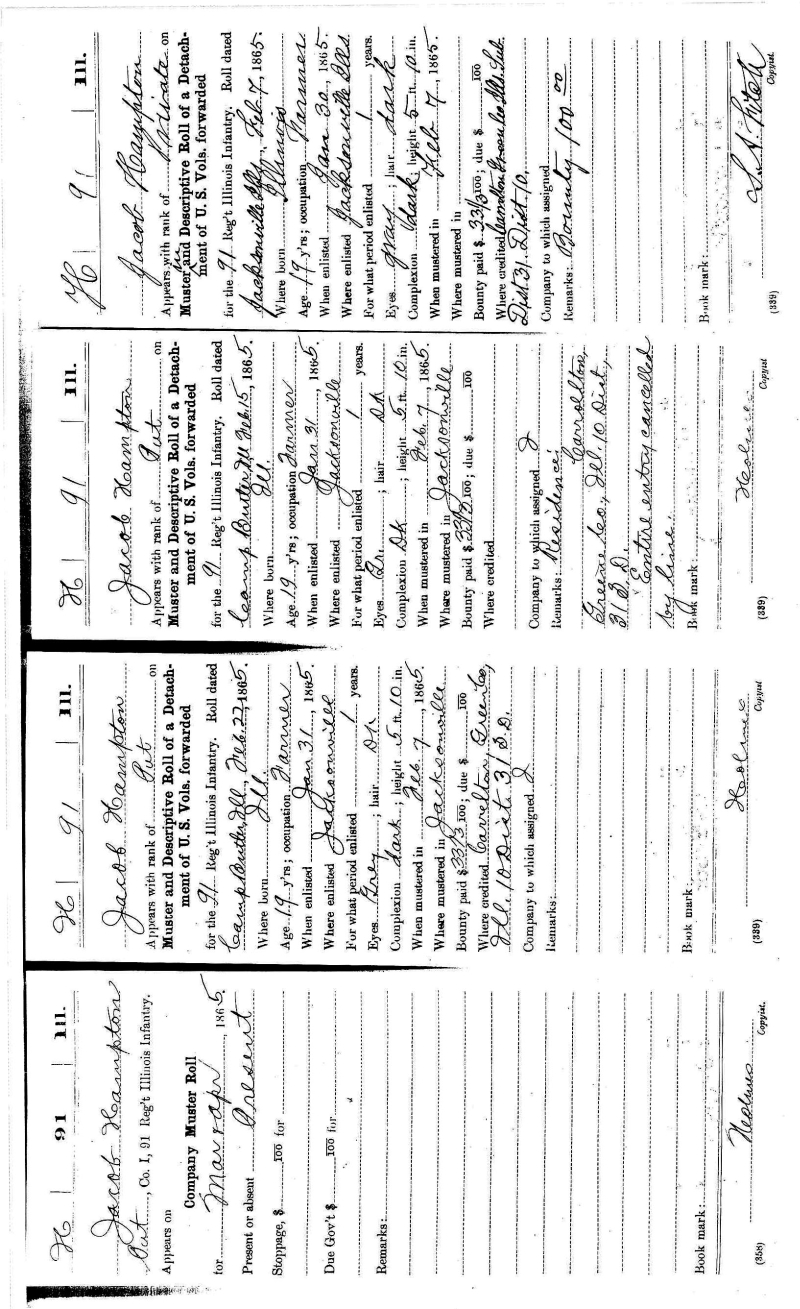 H | 91 | Ill.
Jacob Hampton
Pvt, Co. I, 91 Reg't Illinois Infantry.
Appears on
Company Muster Roll
for Mar & Apr, 1865.
Present or absent Present
Stoppage, $ 100 for
Due Gov't $ 100 for
Remarks:
Book mark:
Holmes
(358) Copyist.
H | 91 | Ill.
Jacob Hampton
Appears with rank of Pvt on
Muster and Descriptive Roll of a Detach-
ment of U. S. Vols. forwarded
for the 91 Reg't Illinois Infantry. Roll dated
Camp Butler, Ill., Feb. 22, 1865.
Where born Ill.
Age 19 y'rs; occupation Farmer
When enlisted Jan 31, 1865.
Where enlisted Jacksonville
For what period enlisted 1 years.
Eyes Grey; hair Dk
Complexion dark; height 5 ft. 10 in.
When mustered in Feb. 7, 1865.
Where mustered in Jacksonville
Bounty paid $ 33 1/3 100; due $ 100
Where credited Carrelton Green Co,
Ill. 10 Dist. 31 S. D.
Company to which assigned I
Remarks:
Book mark:
Holmes
(339) Copyist
H | 91 | Ill.
Jacob Hampton
Appears with rank of Pvt on
Muster and Descriptive Roll of a Detach-
ment of U. S. Vols. forwarded
for the 91 Reg't Illinois Infantry. Roll dated
Camp Butler, Ill Feb. 15, 1865.
Where born Ill.
Age 19 y'rs; occupation Farmer
When enlisted Jan 31, 1865.
Where enlisted Jacksonville
For what period enlisted 1 years.
Eyes Gr.; hair Dk
Complexion Dk; height 5 ft. 10 in.
When mustered in Feb. 7, 1865.
Where mustered in Jacksonville
Bounty paid $ 33 1/3 100; due $ 100
Where credited
Company to which assigned I
Remarks: Residence:
Carrollton,
Greene Co., Ill. 10 Dist,
31 S. D.
Entire entry cancelled
by line.
Book mark:
Holmes
(339) Copyist
H | 91 | Ill.
Jacob Hampton
Appears with rank of Private on
Muster in and Descriptive Roll of a Detach-
ment of U. S. Vols. forwarded
for the 91 Reg't Illinois Infantry. Roll dated
Jacksonville Ills, Feb. 7, 1865.
Where born Illinois
Age 19 y'rs; occupation Farmer
When enlisted Jan 30, 1865.
Where enlisted Jacksonville Ills
For what period enlisted 1 years.
Eyes gray; hair dark
Complexion dark; height 5 ft. 10 in.
When mustered in Feb 7, 1865.
Where mustered in
Bounty paid $ 33 1/3 100; due $ 100
Where credited Green Co Ills Sub
Dist. 31. Dist. 10.
Company to which assigned
Remarks: Bounty 100 00
Book mark:
(339) Copyist.